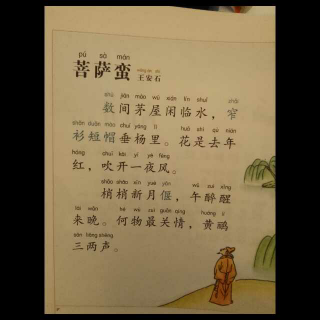 pú sà mán wáng ān shí
菩萨蛮 王安石
shù jiān máo wū xián lín shuǐ zhǎi
数间茅屋闲临水，窄
shān duǎn mào chuí yáng lǐ huā shì qù nián
衫短帽垂杨里。花是去年
hóng chuī kāi yí yè fēng
红，吹开一夜风。
shāo shāo xīn yuè yǎn wǔ zuì xǐng
梢梢新月偃，午醉醒
lái wǎn hé wù zuì guān qíng huáng lí
来晚。何物最关情，黄鹂
sān liǎng shēng
三两声。